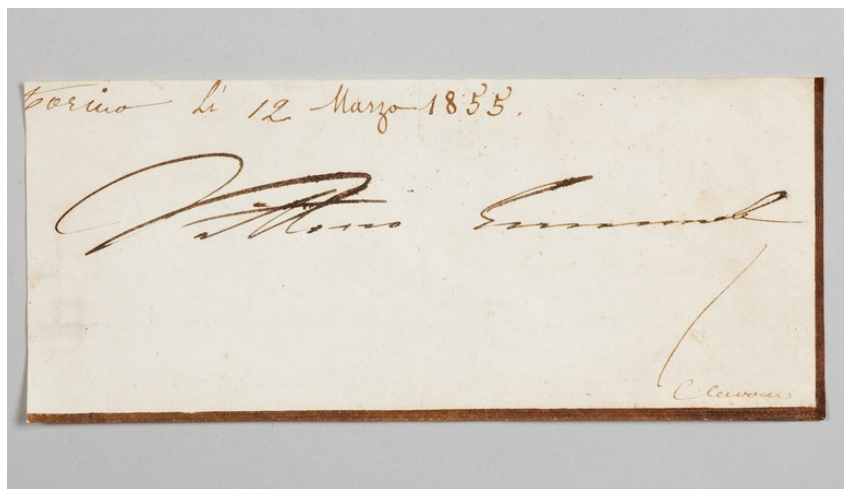 Torino Li 12 Marzo 1855.
Vittorio Emanuele